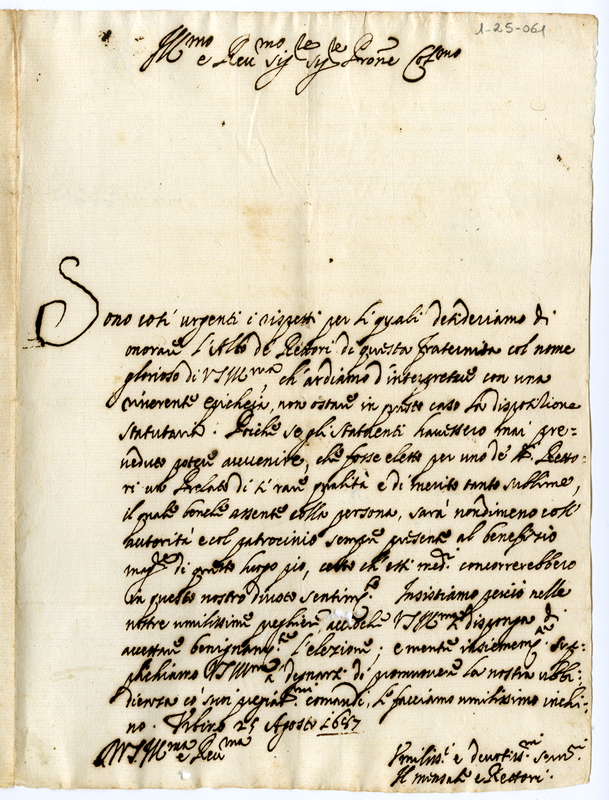 1-25-061
Ill.mo e Reu.mo Sig.re Sig.re Prone Col.mo
Sono così urgenti i rispetti per li quali desideriamo di
onorare l'Albo de Rettori di questa fraternita col nome
glorioso di VS Ill.ma ch'ardiamo d'interpretare con una
riuerente epicheja, non ostare in questo caso la dispositione
statutaria. Poiche se gli statuenti hauessero mai pre=
ueduto potere auuenire, che fosse eletto per uno de Retto=
ri un Prelato di sì rare qualità e di merito tanto sublime,
il quale benche assente colla persona, sarà nondimeno coll'
autorità e col patrocinio sempre presente al benefizio
magg.re di questo luogo pio, certo ch'essi med.i concorrerebbero
in questo nostro diuoto sentim.to Insistiamo perciò nelle
nostre umilissime preghiere accioche VS Ill.ma si disponga di
accettare benignam.te l'elezione; e mentre insiememente sup=
plichiamo VS Ill.ma a degnarsi di promouere la nostra ubbi=
dienza co' suoi pregiat.mi comandi, le facciamo umilissimo inchi=
no. Urbino 25 Agosto 1687
VS Ill.ma e Reu.ma
Umiliss.i e deuotiss.mi seru.i
Il mensale e Rettori.